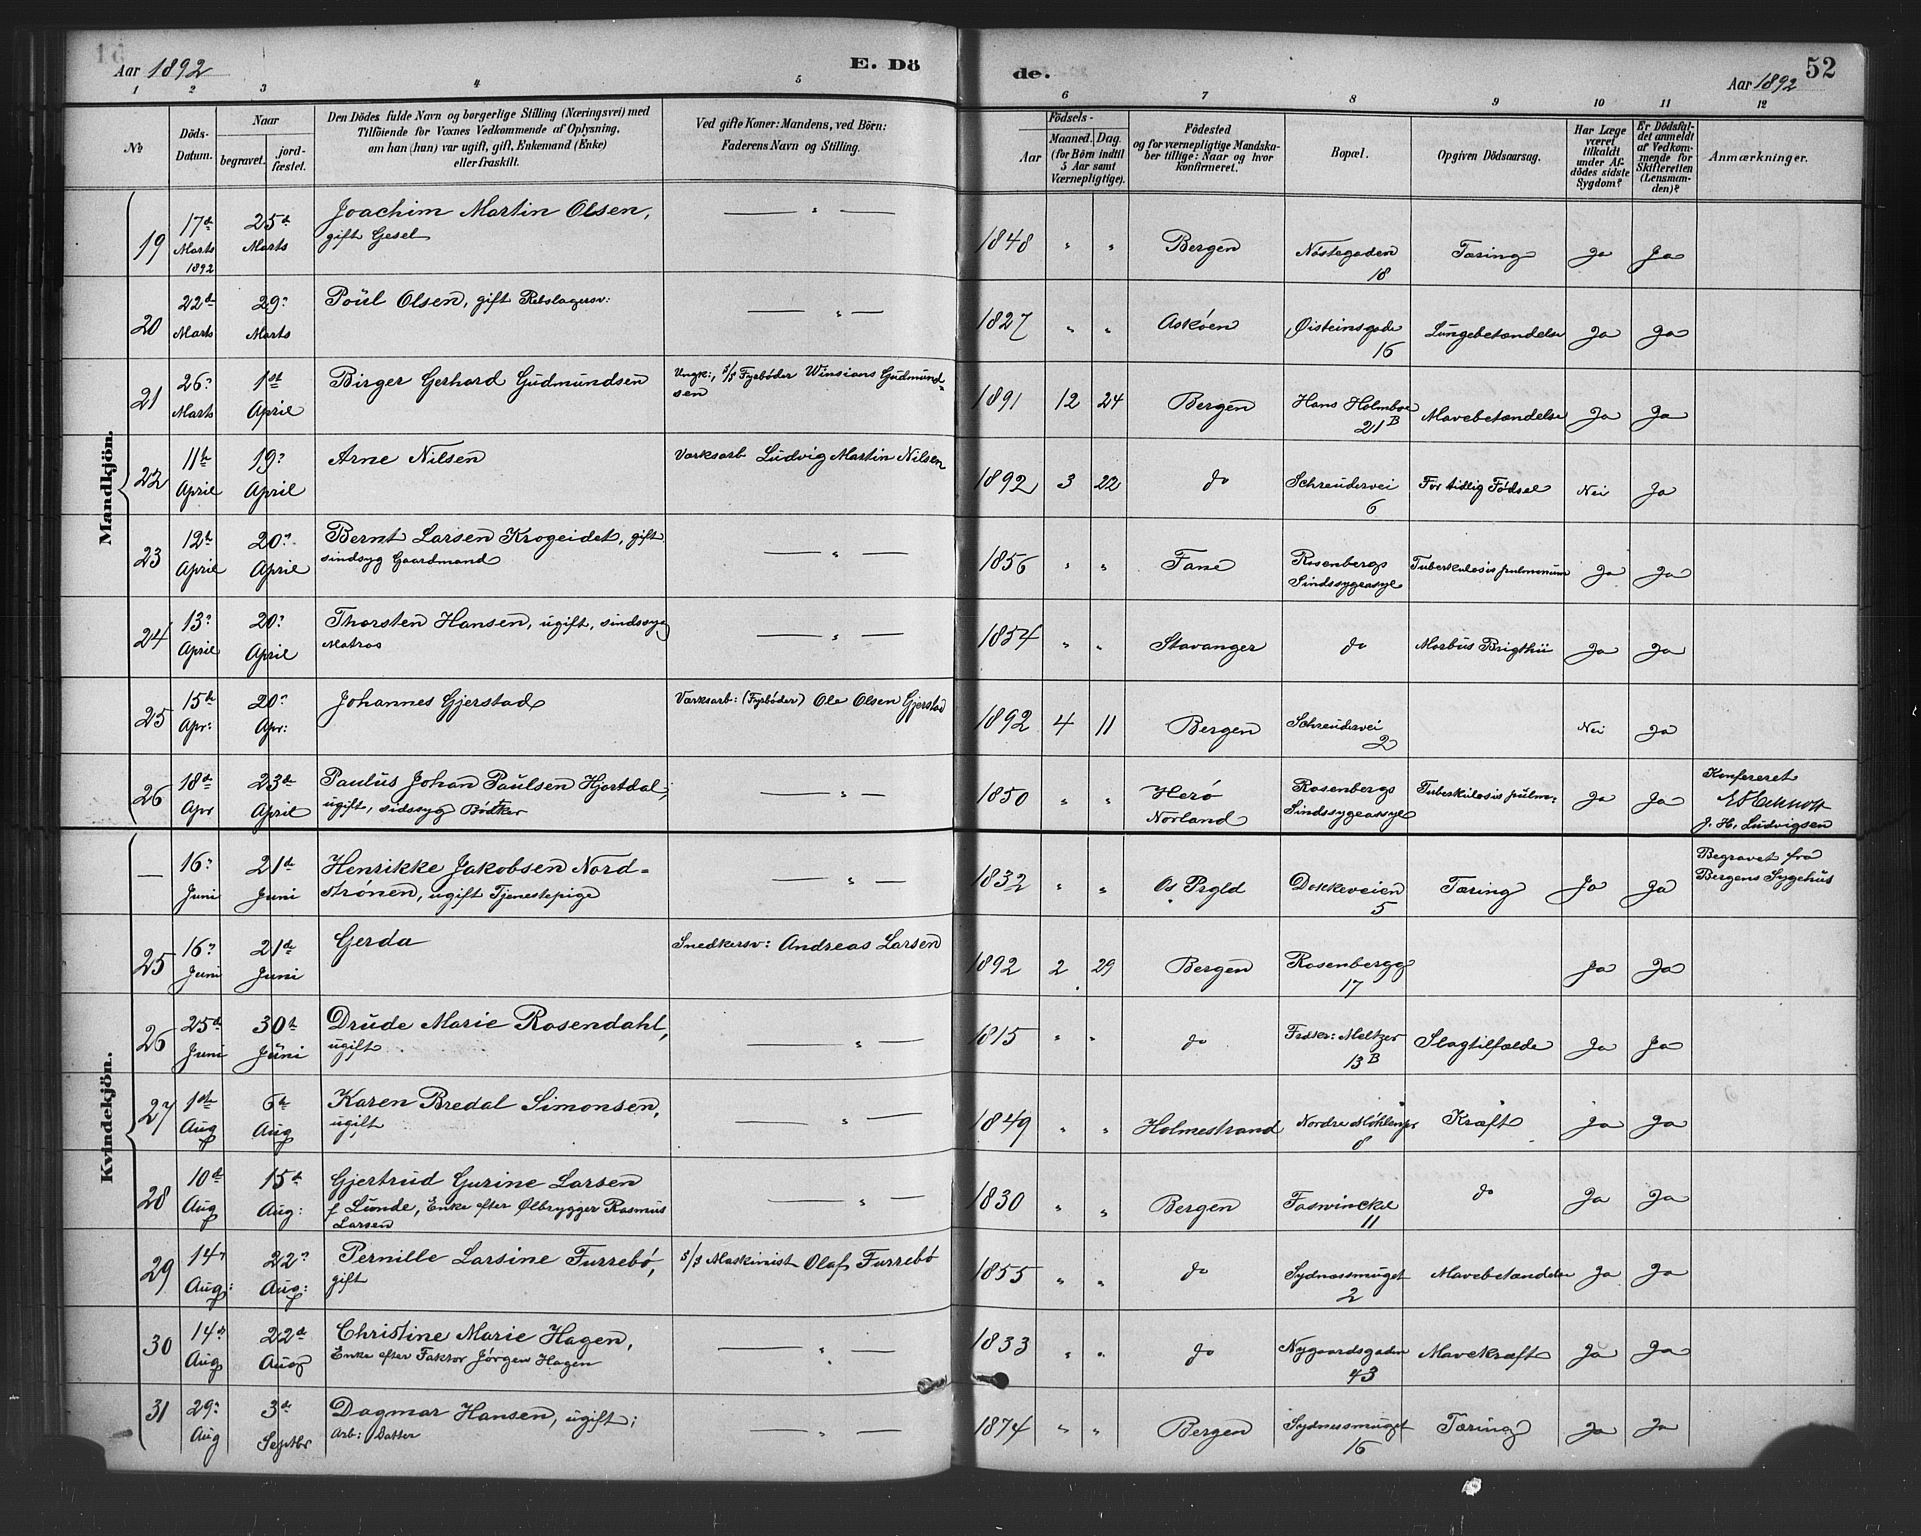 Aar 1892 E. Dö de. Aar 1892 52
1 2 3 4 5 6 7 8 9 10 11 12
No
Döds-Datum.
Naar
begravet.
jord-fæstet.
Den Dödes fulde Navn og borgerlige Stilling (Næringsvei) med
Tilföiende for Voxnes Vedkommende af Oplysning,
om han (hun) var ugift, gift, Enkemand (Enke)
eller fraskilt.
Ved gifte Koner: Mandens, ved Börn:
Faderens Navn og Stilling.
Födsels-
Aar
Maaned. Dag.
(for Börn indtil
5 Aar samt
Værnepligtige).
Födested
og for værnepligtige Mandska-
ber tillige: Naar og hvor
konfirmeret.
Bopæl.
Opgiven Dödsaarsag.
Har Læge
været
tilkaldt
under Af-
dödes sidste
Sygdom?
Er Dödsfal-
det anmeldt
af Vedkom-
mende for
Skifteretten
(Lensman-
den)?
Anmærkninger.
Mandkjön.
19 17d Marts 1892 25d Marts Joachim Martin Olsen, — " — 1848 " " Bergen Nöstegaden 18 Tæring Ja Ja
gift Gesel
20 22d Marts 29 Marts Poul Olsen, gift Rebslagersv: — " — 1827 " " Askøen Øisteinsgade 16 Lungebetændelse Ja Ja
21 26 Marts 1st April Birger Gerhard Gudmundsen Ungk:, S/S Fyrbøder Winsians Gudmund- 1891 12 24 Bergen Hans Holmboe 21B Mavebetændelse Ja Ja
sen
22 11te April 19 April Arne Nilsen Værksarb Ludvig Martin Nilsen 1892 3 22 do Schreudervei 6 For tidlig Fødsel Nei Ja
23 12te April 20 April Bernt Larsen Krogeidet, gift — " — 1856 " " Fane Rosenbergs Tuberkulosis pulmonum Ja Ja
sindsyg Gaardmand Sindssygeasyl
24 13 April 20 April Thorsten Hansen, ugift, sindssyg — " — 1854 " " Stavanger do Morbus Brigthii Ja Ja
Matros
25 15de Apr: 20 Apr: Johannes Gjerstad Værksarb: (Fyrbøder) Ole Olsen Gjerstad 1892 4 11 Bergen Schreudervei 2 Nei Ja
26 18d Apr 23de April Paulus Johan Paulsen Hjortdal, — " — 1850 " " Herø Rosenbergs Tuberkulosis pulm: Ja Ja Konfereret
ugift, sidssyg Bødker Norland Sindssygeasyl
J. H. Ludvigsen
Kvindekjön.
— 16 Juni 21d Juni Henrikke Jakobsen Nord- — " — 1832 " " Os Prgld Dokkeveien 5 Tæring Ja Ja Begravet fra
strönen, ugift Tjenestepige Bergens Sygehus
25 16 Juni 21d Juni Gerda Snedkersv: Andreas Larsen 1892 2 29 Bergen Rosenbergg 17 Ja Ja
26 25d Juni 30te Juni Drude Marie Rosendahl, — " — 1815 " " do Fredkr: Meltzer 13B Slagtilfælde Ja Ja
ugift
27 1ste Aug 6te Aug Karen Bredal Simonsen, — " — 1849 " " Holmestrand Nordre 8 Kræft Ja Ja
ugift
28 10de Aug 15de Aug: Gjertrud Gurine Larsen — " — 1830 " " Bergen Fosvinckel 11 do Ja Ja
f Lunde, Enke efter Ølbrygger Rasmus
Larsen
29 14 Aug: 22 Aug: Pernille Larsine Furrebö, S/S Maskinist Olaf Furrebö 1855 " " do Sydnessmuget 2 Mavebetændelse Ja Ja
gift
30 14d Aug 22d Aug Christine Marie Hagen, — " — 1833 " " do Nygaardsgaden 43 Mavekræft Ja Ja
Enke efter Faktor Jörgen Hagen
31 29 Aug 3d Septbr Dagmar Hansen, ugift; — " — 1874 " " Bergen Sydnessmuget 16 Tæring Ja Ja
Arb: Datter